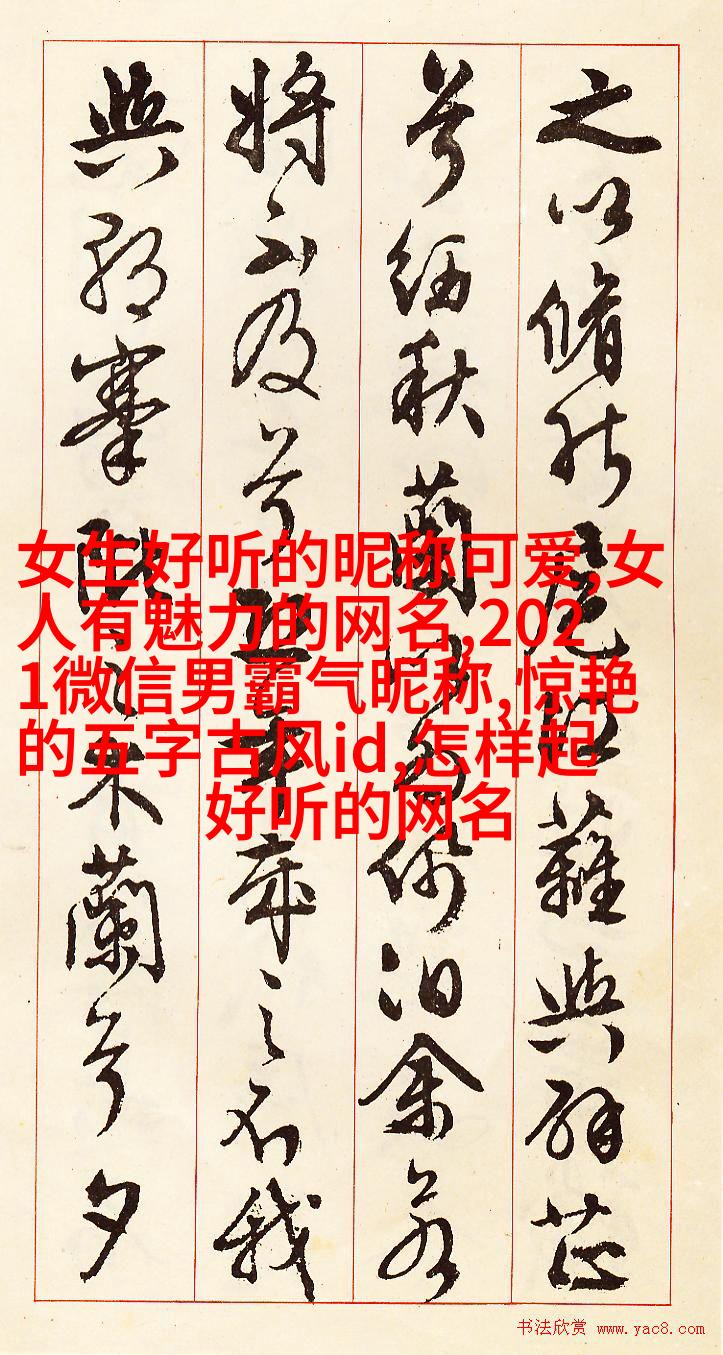 之以脩能扈江蘺與辟芷
兮紉秋蘭以為佩汨余若
將不及兮恐年歲之不我
與朝搴阰之木蘭兮夕
女生好听的昵称可爱,女
人有魅力的网名,202
1微信男霸气昵称,惊艳
的五字古风id,怎样起
好听的网名
书法欣赏 www.yac8.com